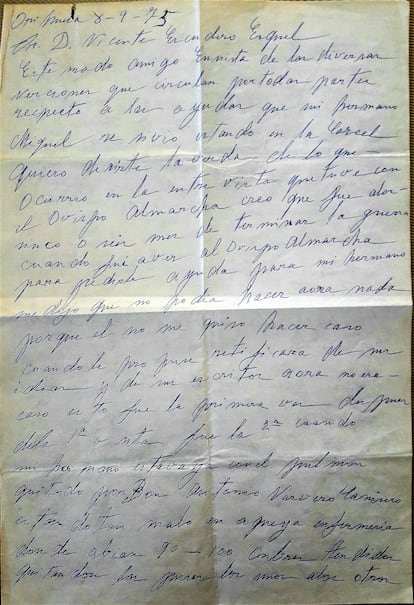 Orihuela 8-9-75
Sr. D. Vicente Escudero Esquel
Estimado amigo En vista de las diversas
versiones que circulan por todas partes
respecto a las ayudas que mi hermano
Miguel se vivio estando en la Carcel
quiero decirte la verda de lo que
Ocurrio en la entrevista que tuve con
el Ovispo Almarcha creo que fue alos
cinco o seis mes de terminar la guerra
cuando fui aver al Ovispo Almarcha
para pedirle ayuda para mi hermano
me dijo que no podia hacer aora nada
porque el no me quiso hacer caso
cuando le propuse retificara de sus
ideas y de sus escritos aora no era
caso esto fue la primera vez despues
dela 1ª visita fue la 2ª cuando
mi hermano estava ya con el pulmon
quitado por Don Antonio Varvero Carnicero
estando tan malo en aqueya enfermeria
donde abian 90-100 Ombres tendidos
quitandose los piojos los unos alos otros